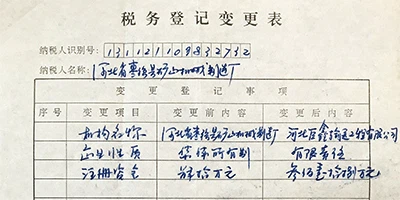 税务登记变更表
纳税人识别号:
纳税人名称: 河北省枣强县矿山机械制造厂
变更登记事项
序号 变更项目 变更前内容 变更后内容
机构名称 河北省枣强县矿山机械制造厂 河北巨鑫 有限公司
企业性质 集体所有制 有限责任
注册资金 拾万元 万元